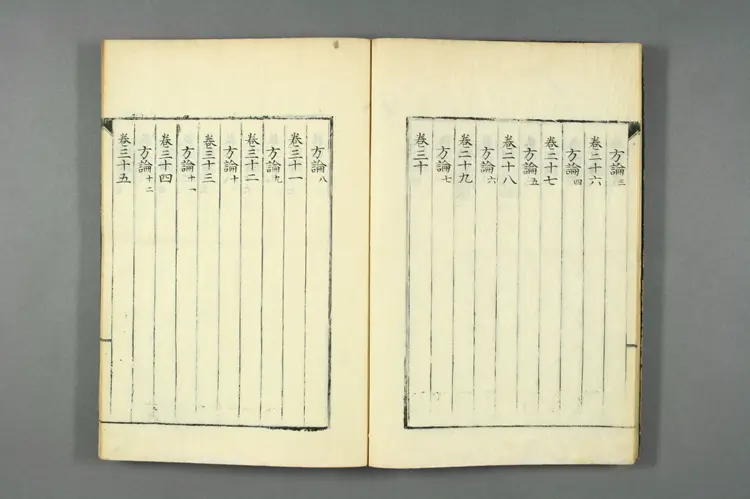 方論三
卷二十六
方論四
卷二十七
方論五
卷二十八
方論六
卷二十九
方論七
卷三十
方論八
卷三十一
方論九
卷三十二
方論十
卷三十三
方論十一
卷三十四
方論十二
卷三十五